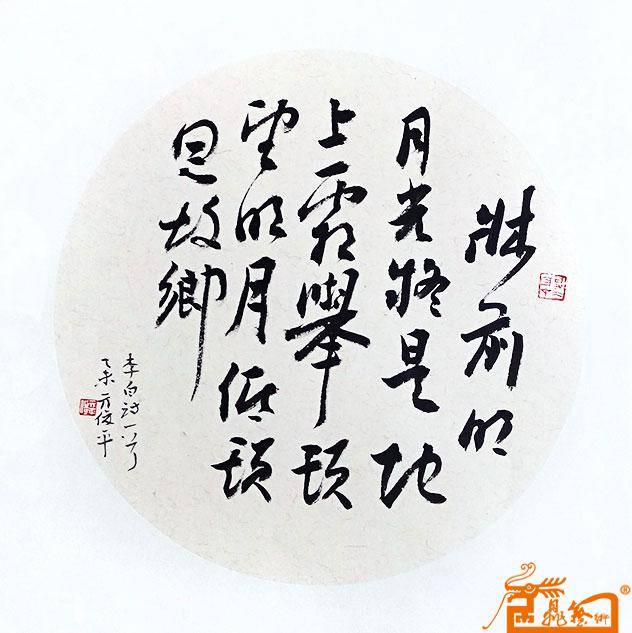 牀前明
月光疑是地
上霜舉頭
望明月低頭
思故鄉
李白诗一首
乙未方俊平